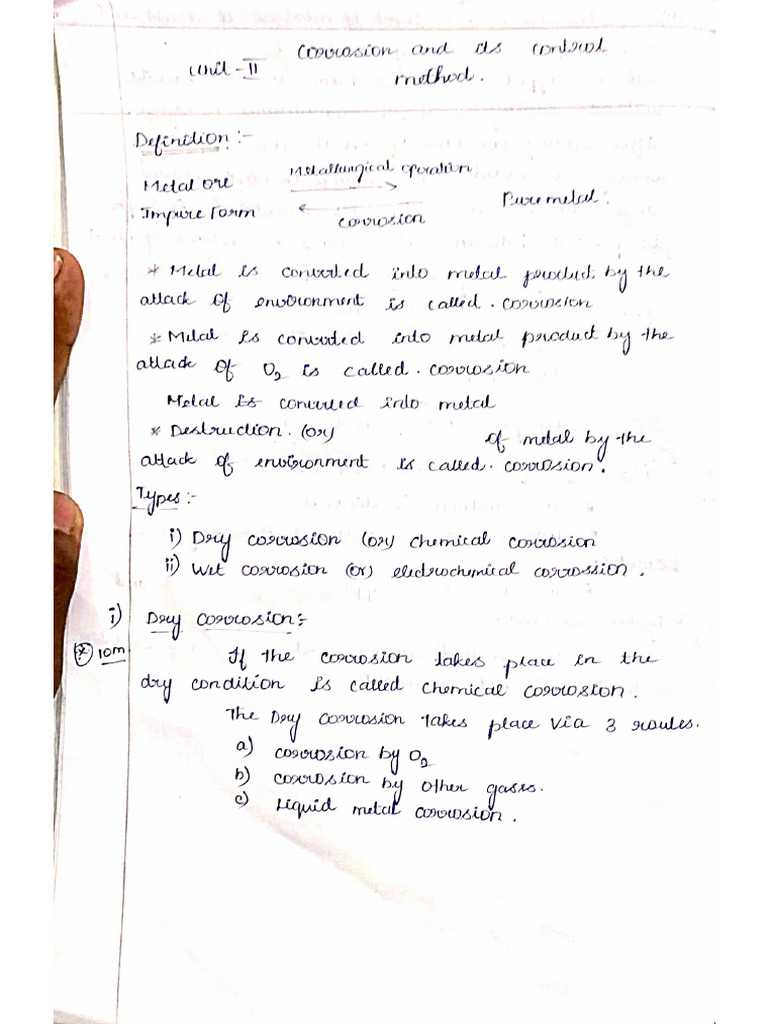 Corrosion and its control
Unit - II
method.
Definition :-
Metal ore Metallurgical operation
Pure metal.
Impure form corrosion
* Metal is converted into metal product by the
attack of environment is called . corrosion
* Metal is converted into metal product by the
attack of O2 is called . corrosion
Metal is converted into metal
* Destruction . (or) of metal by the
attack of environment is called . corrosion .
Types :-
i) Dry corrosion (or) chemical corrosion
ii) Wet corrosion (or) electrochemical corrossion .
i) Dry corrosion :-
* 10m
If the corrosion takes place in the
dry condition is called chemical corrosion .
The Dry corrosion takes place via 3 routes.
a) corrosion by O2
b) corrosion by other gases.
c) Liquid metal corrosion .